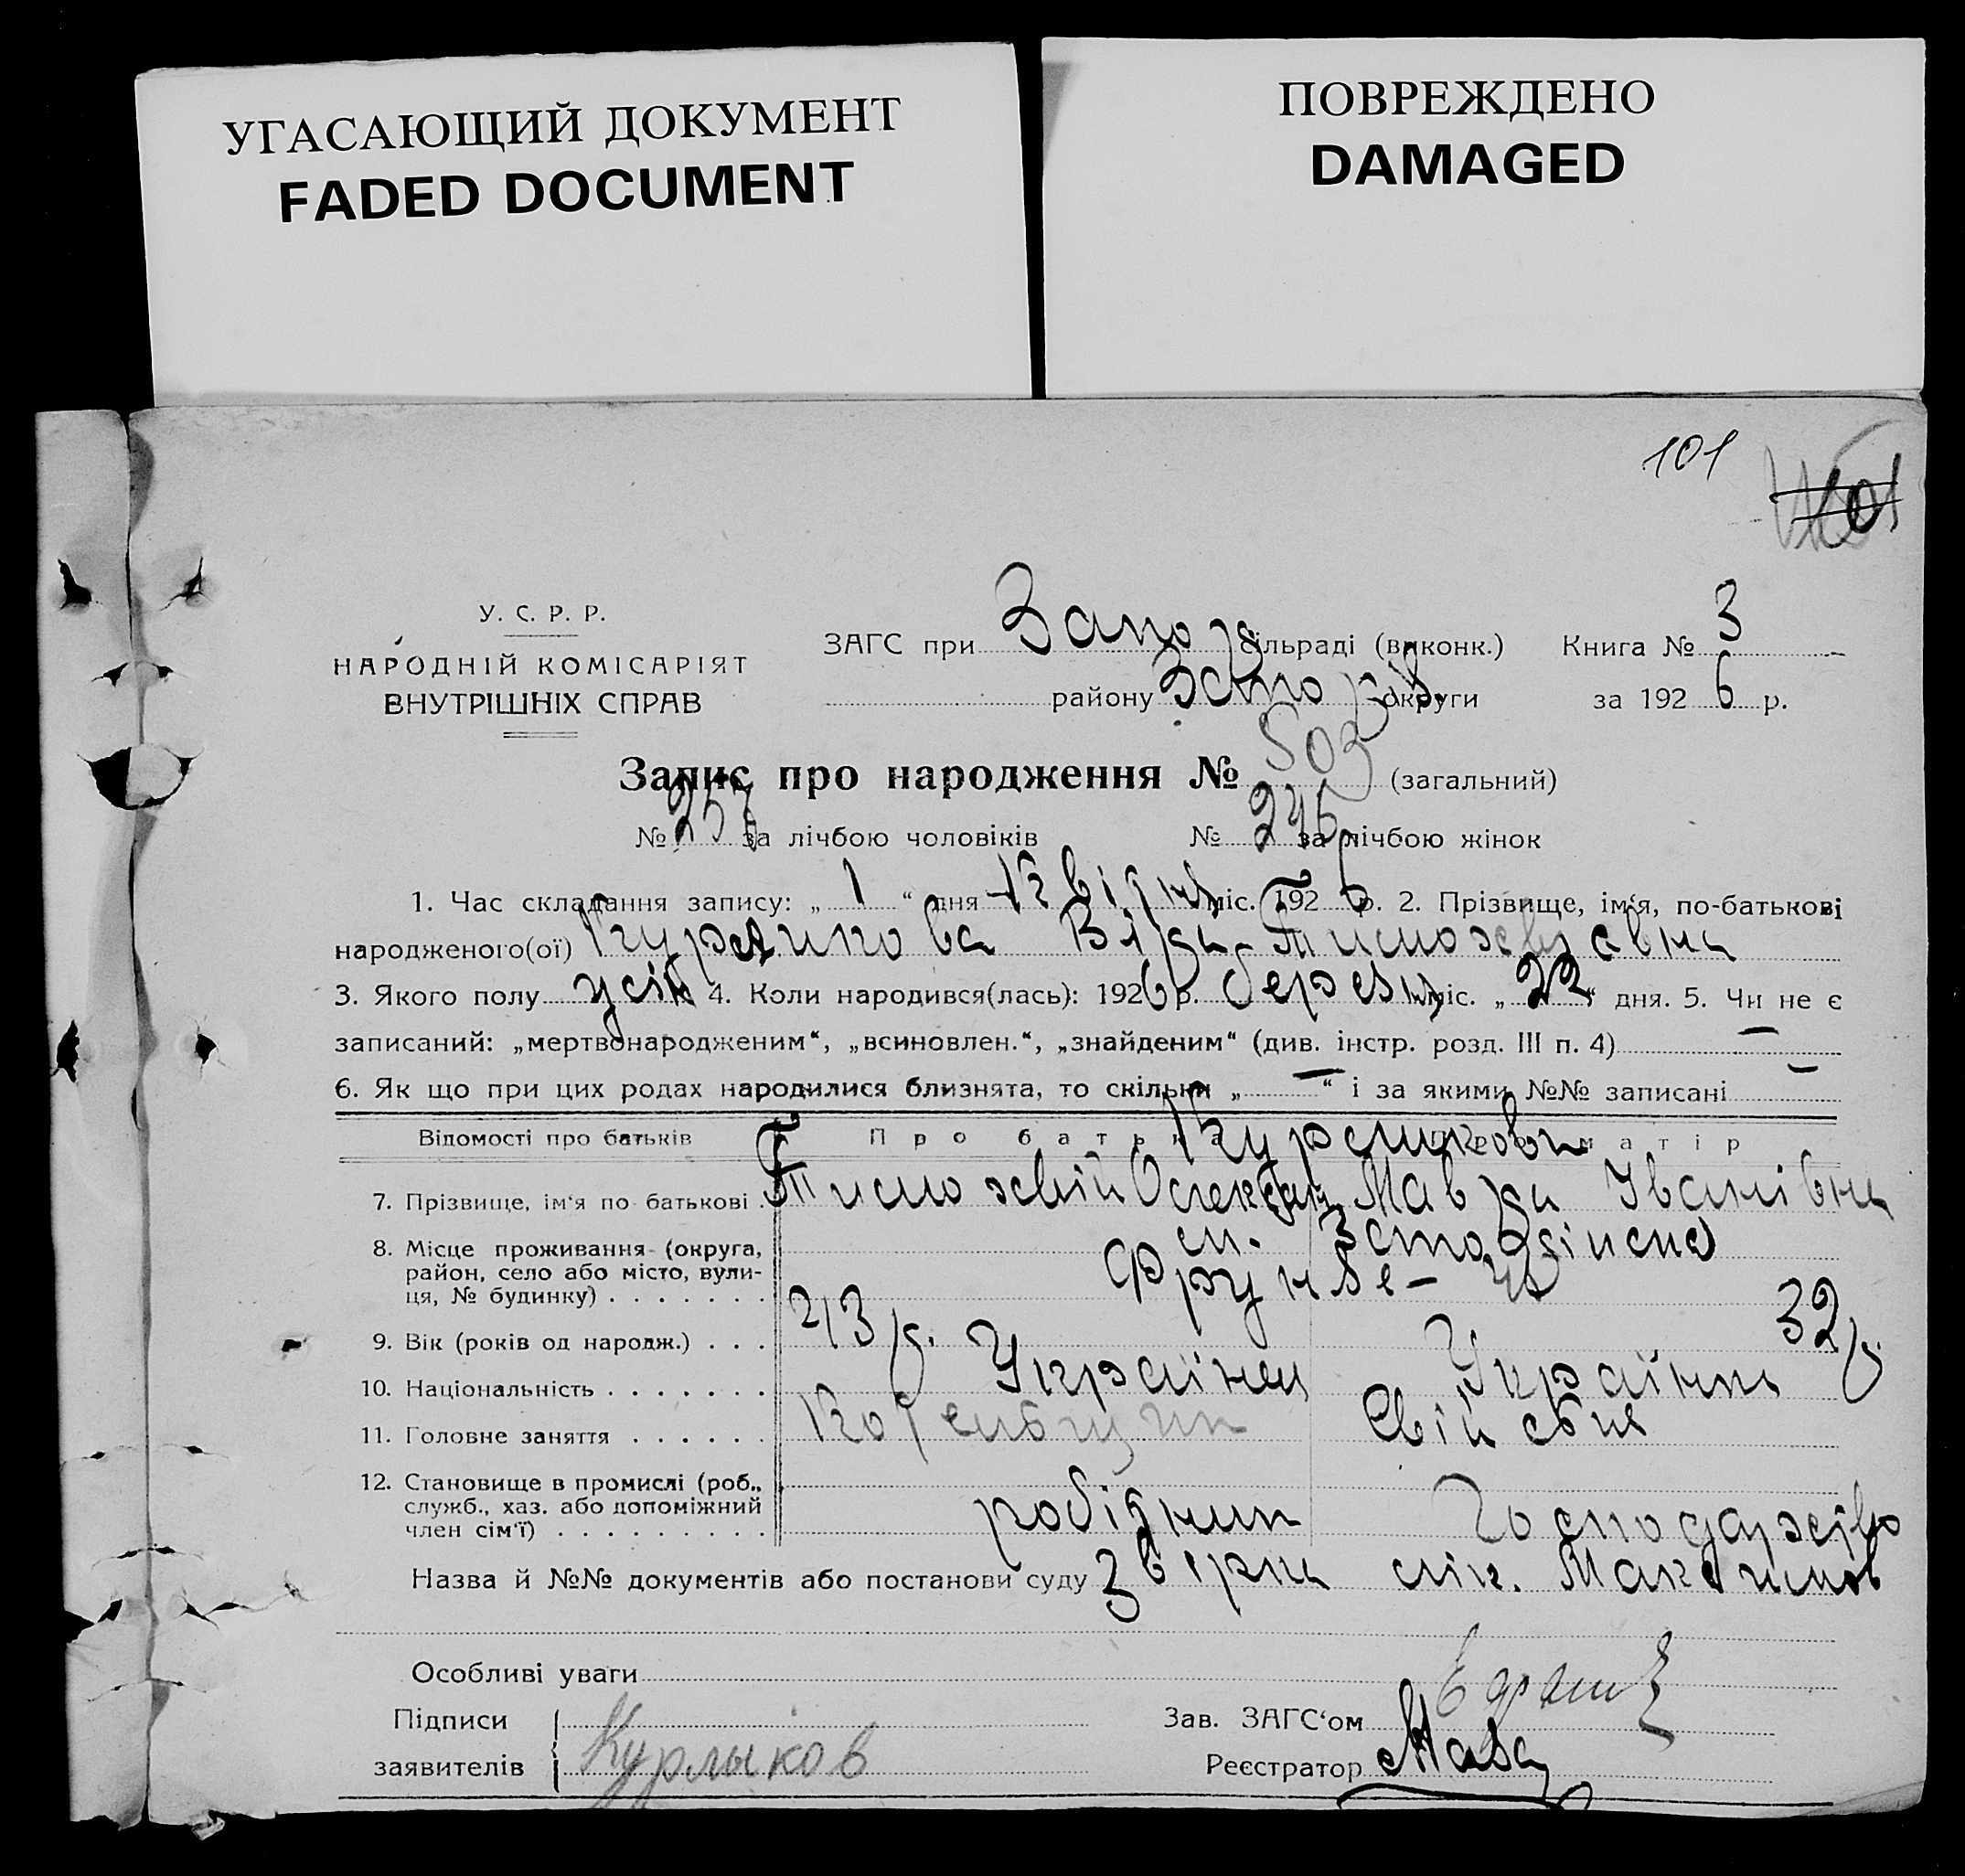 УГАСАЮЩИЙ ДОКУМЕНТ
FADED DOCUMENT
ПОВРЕЖДЕНО
DAMAGED
101
У. С. Р. Р.
НАРОДНІЙ КОМІСАРІЯТ
ВНУТРІШНІХ СПРАВ
ЗАГС при Запор сільраді (виконк.) Книга № 3
району Запоріз округи за 1926 р.
Запис про народження № 503 (загальний)
№ 257 за лічбою чоловіків № 246 за лічбою жінок
1. Час складання запису: „ 1 “ дня Квітня міс. 1926 р. 2. Прізвище, ім‘я, по-батькові
народженого(ої) Віра Тимофіївна
3. Якого полу жін 4. Коли народився(лась): 1926 р. березня міс. „ 22 “ дня. 5. Чи не є
записаний: „мертвонародженим“, „всиновлен.“, „знайденим“ (див. інстр. розд. III п. 4) —
6. Як що при цих родах народилися близнята, то скільки „ — “ і за якими №№ записані —
Відомості про батьків Про батька Про матір
7. Прізвище, ім‘я по батькові Тимофій Олександ Мавра Іванівна
8. Місце проживання (округа, м. Запоріжжя
район, село або місто, вули- Фрунзе —
ця, № будинку)
9. Вік (років од народж.) 43 р. 32 р.
10. Національність Українец Українка
11. Головне заняття Котельщик
12. Становище в промислі (роб.,
служб., хаз. або допоміжний робітник господарство
член сім‘ї)
Назва й №№ документів або постанови суду Максимов
Особливі уваги
Підписи Зав. ЗАГС‘ом
заявителів Курлыков Реєстратор